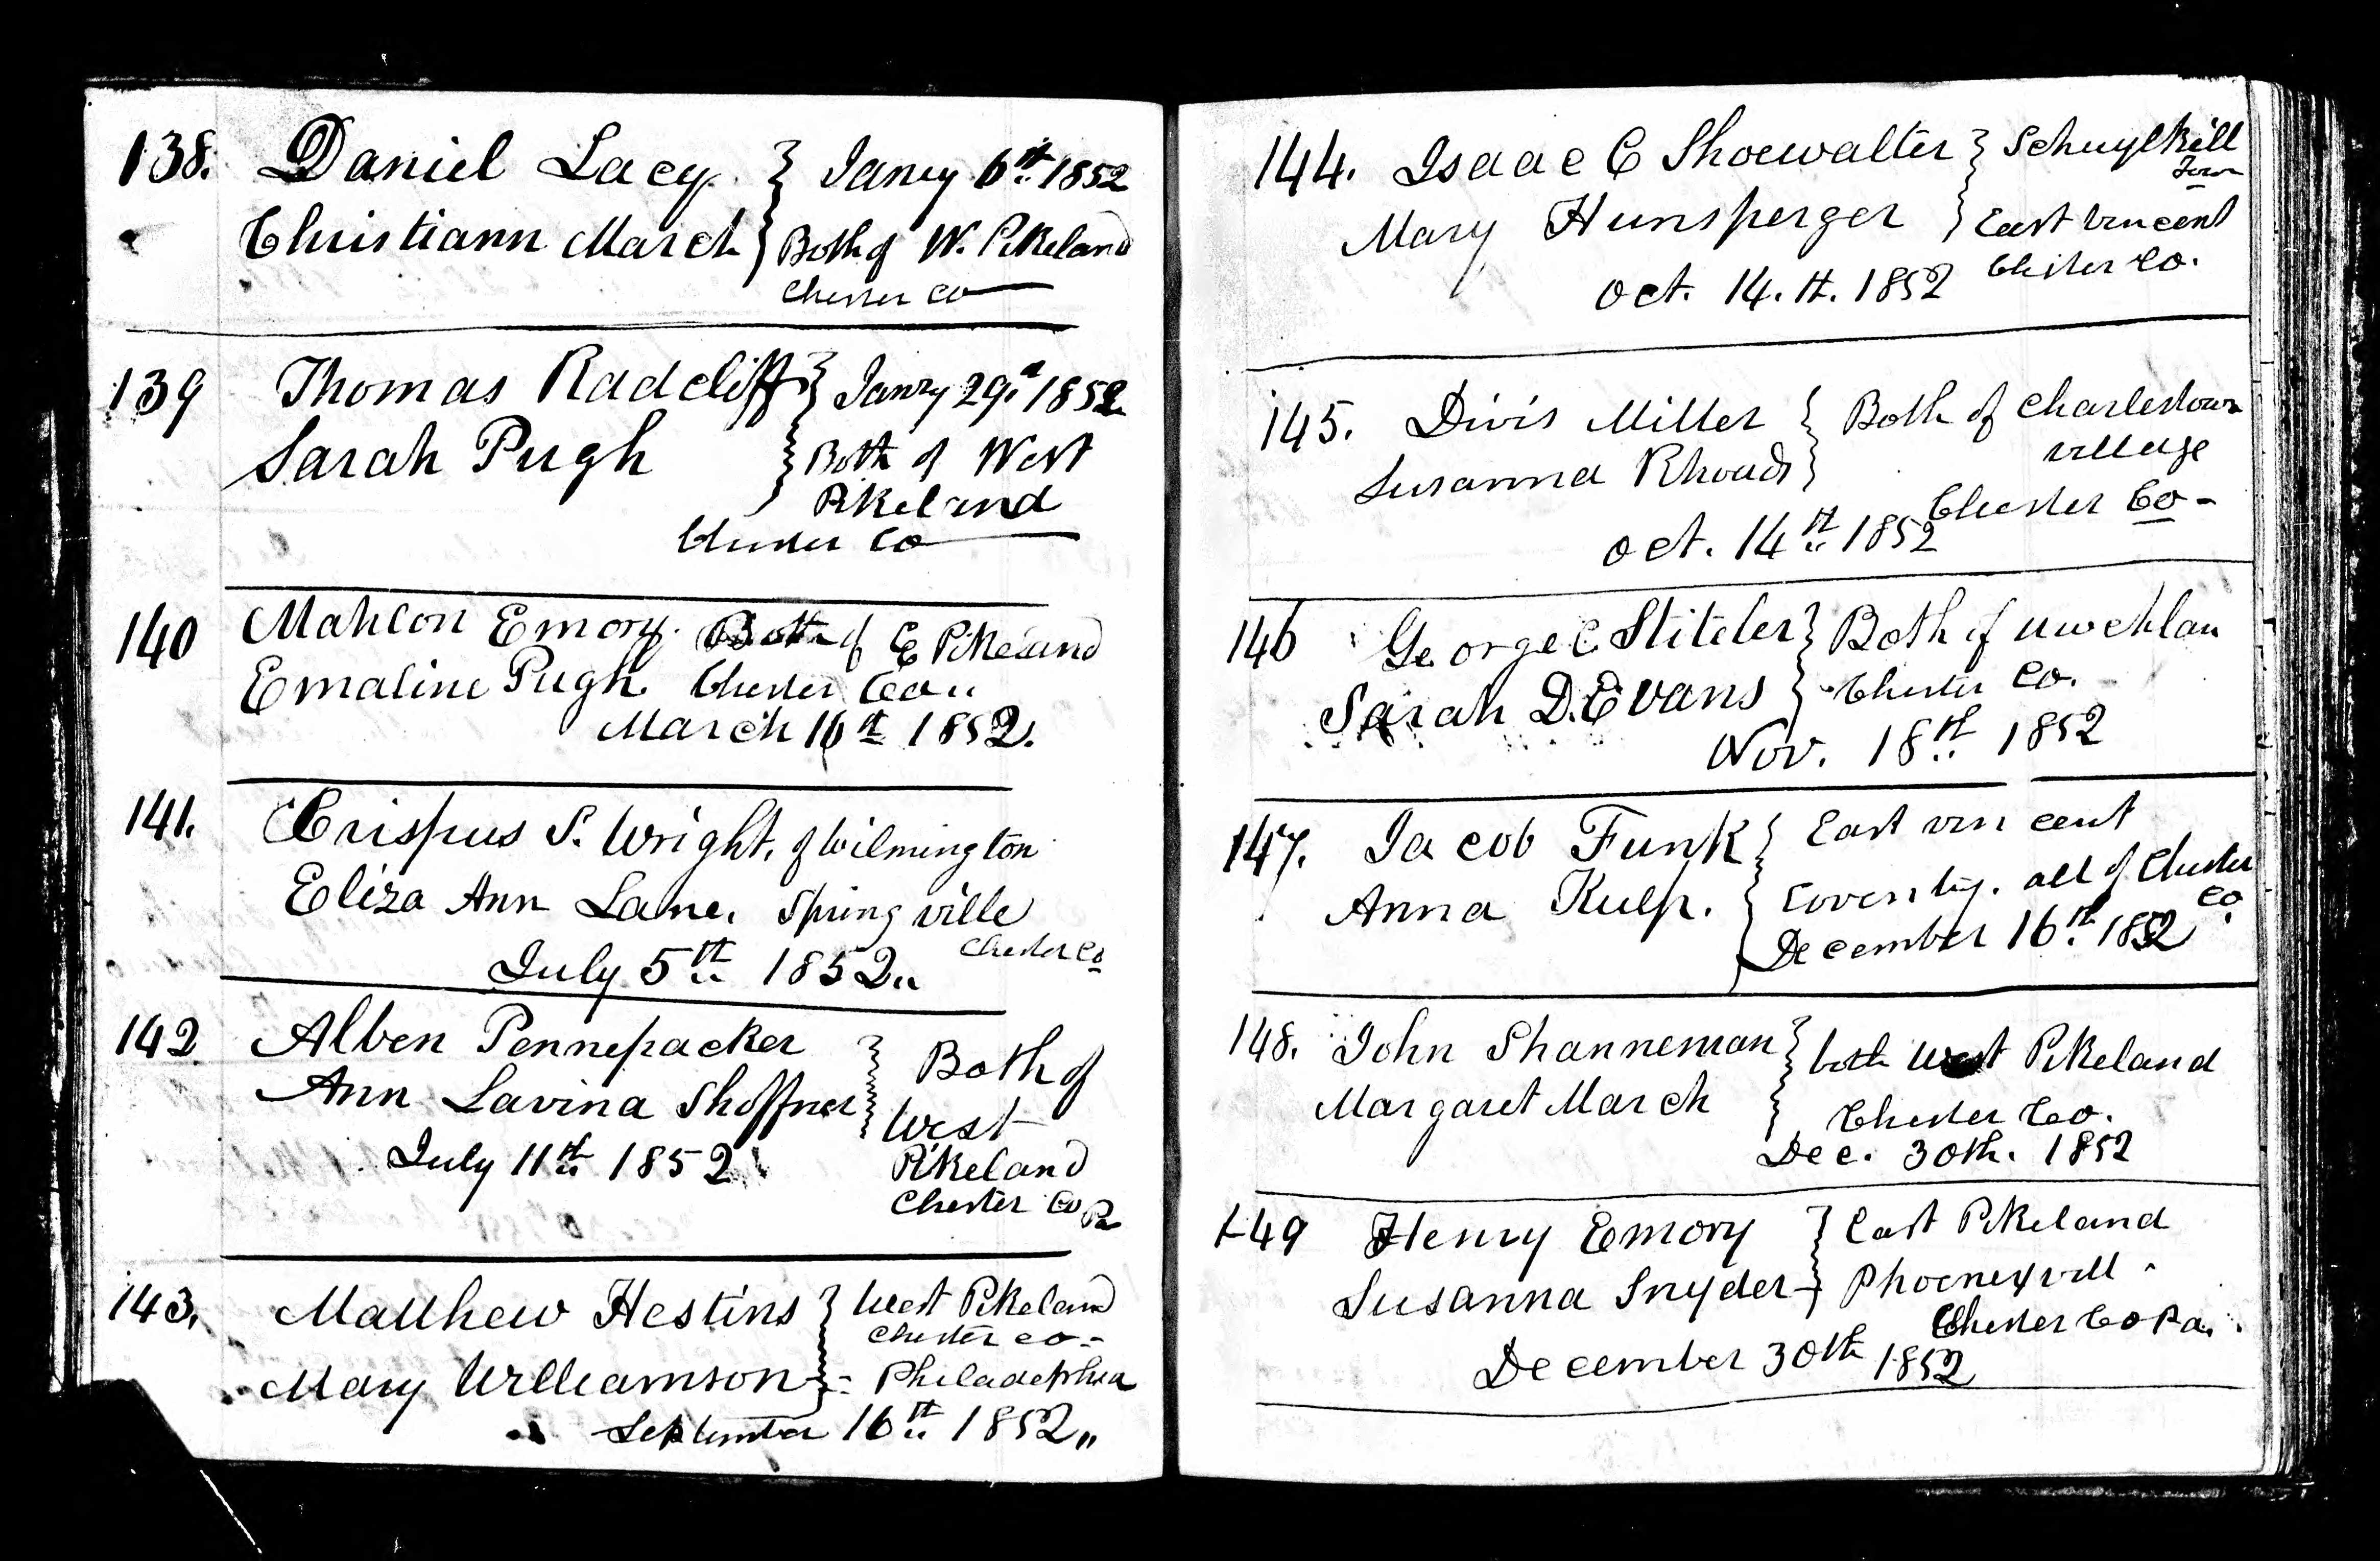 138. Daniel Lacy } Janry 6th 1852
Christiann March } Both of W. Pikeland
Chester Co
139 Thomas Radcliff } Janry 29d 1852
Sarah Pugh } Both of West
Pikeland
Chester Co
140 Mahlon Emory. Both of E Pikeland
Emaline Pugh. Chester Co..
March 16th 1852.
141. Crispus S. Wright, of Wilmington
Eliza Ann Lane. Spring ville
Chester Co
July 5th 1852..
142 Alben Pennepacker } Both of
Ann Lavina Shoffner } West
July 11th 1852 Pikeland
Chester Co Pa
143. Matthew Hestins } West Pikeland
Chester Co-
Mary Williamson } - Philadelphia
September 16th 1852 "
144. Isaac C Shoewalter } Schuylkill
Town
Mary Hunsperger } East Vincent
Chester Co.
Oct. 14. th. 1852
145. Divis Miller } Both of Charlestown
village
Susanna Rhoads }
Chester Co-
Oct. 14th 1852
146 George C Stiteler } Both of Uwchlan
Sarah D. Evans } Chester Co.
Nov. 18th 1852
147. Jacob Funk } East Vincent
Anna Kulp. } Coventry. all of Chester
Co.
December 16th 1852
148. John Shanneman } both West Pikeland
Margaret March } Chester Co.
Dec. 30th. 1852
149 Henry Emory } East Pikeland
Susanna Snyder } Phoenexvill.
Chester Co Pa.
December 30th 1852